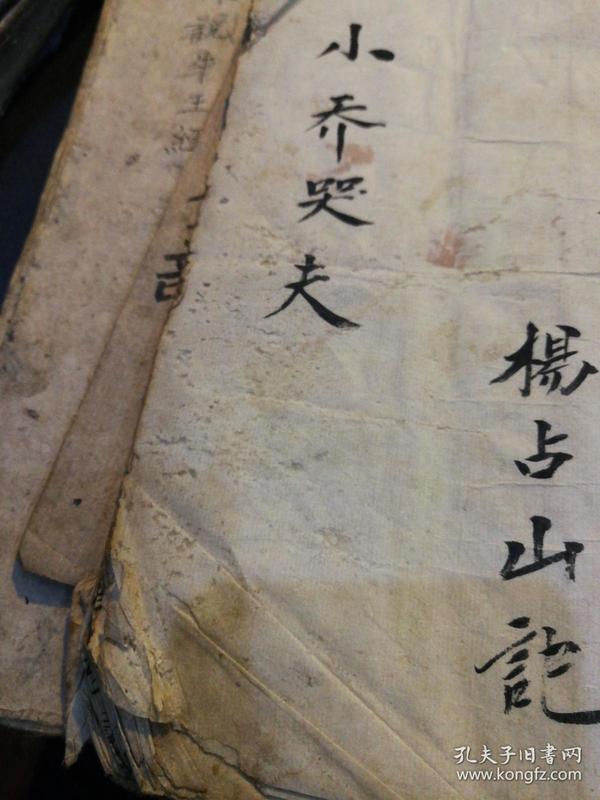 楊占山記
小乔哭夫
說牛王經
孔夫子旧書网
www.kongfz.com